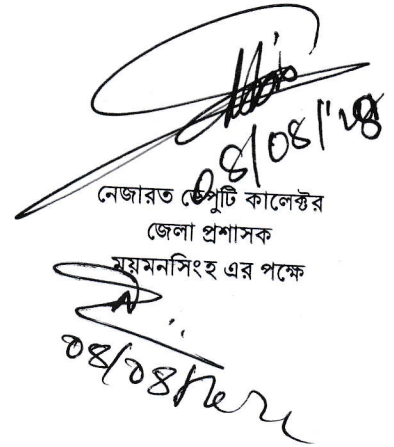 ০৪/০৪/'২৪
নেজারত ডেপুটি কালেক্টর
জেলা প্রশাসক
ময়মনসিংহ এর পক্ষে
০৪/০৪/২০২৪